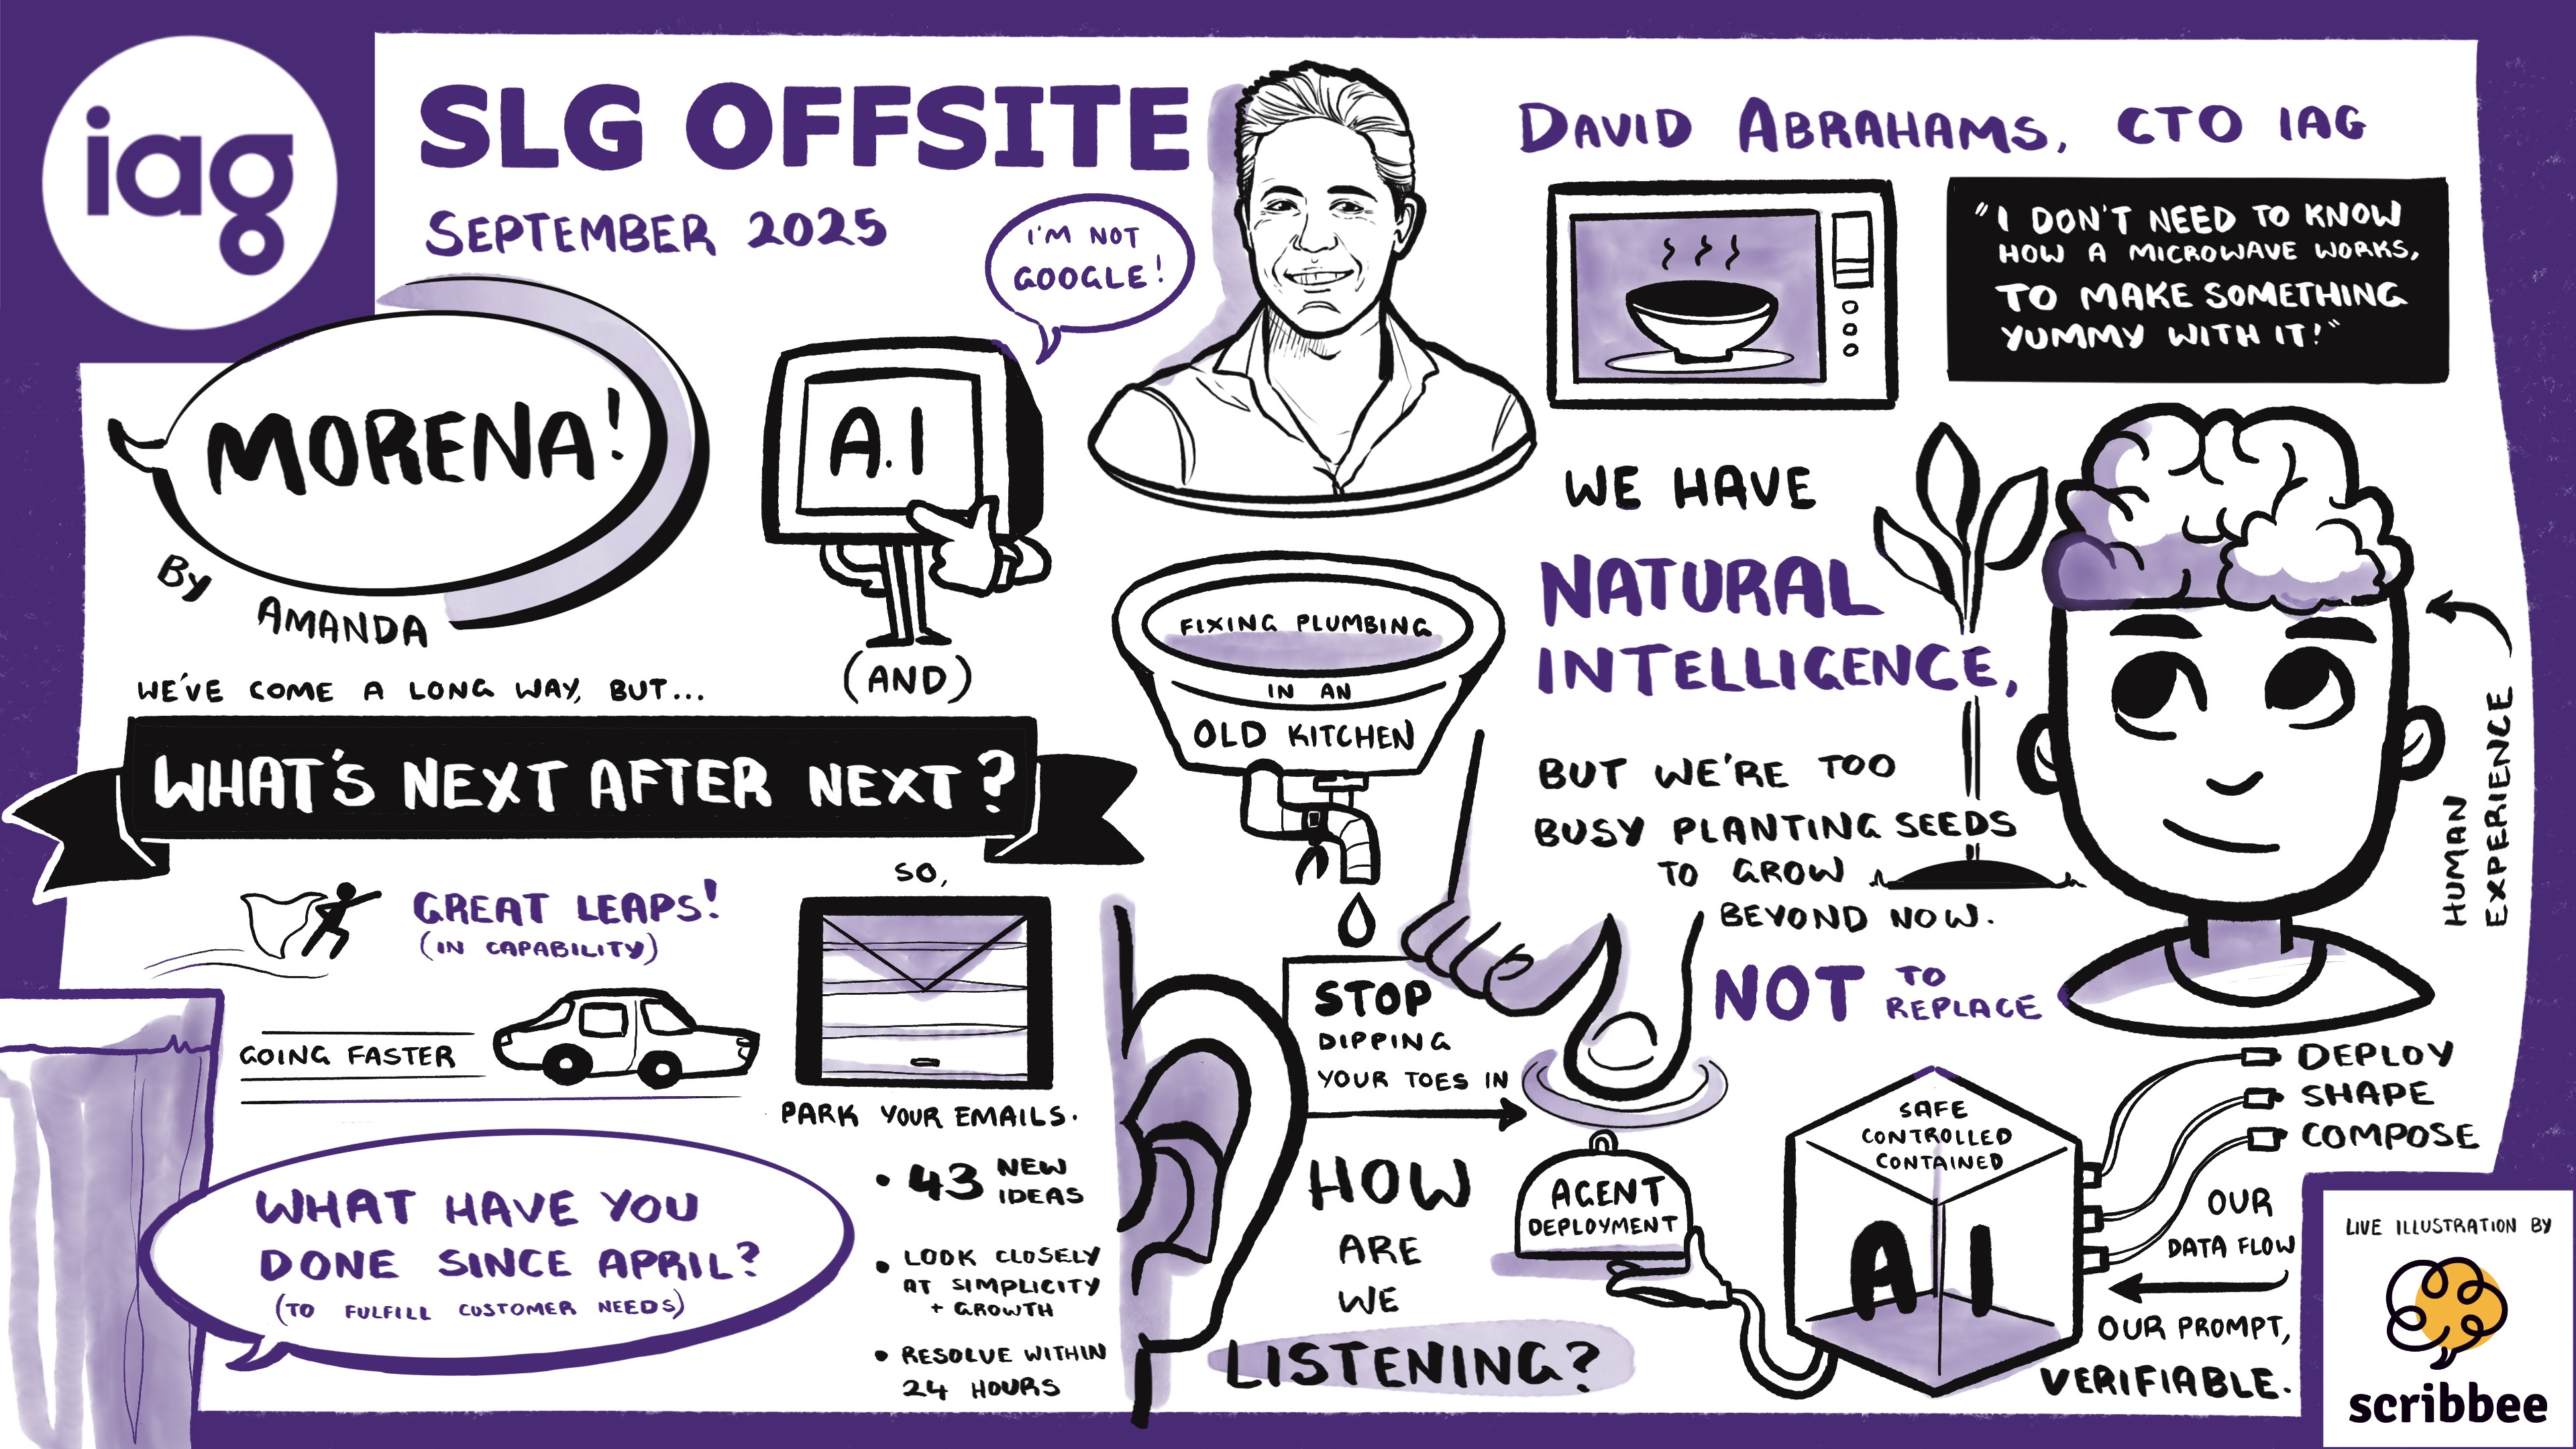 iag
SLG OFFSITE
SEPTEMBER 2025
MORENA!
BY AMANDA
WE'VE COME A LONG WAY, BUT...
WHAT'S NEXT AFTER NEXT?
I'M NOT
GOOGLE!
A.I
(AND)
GREAT LEAPS!
(IN CAPABILITY)
GOING FASTER
SO,
PARK YOUR EMAILS.
WHAT HAVE YOU
DONE SINCE APRIL?
(TO FULFILL CUSTOMER NEEDS)
• 43 NEW
IDEAS
• LOOK CLOSELY
AT SIMPLICITY
+ GROWTH
• RESOLVE WITHIN
24 HOURS
DAVID ABRAHAMS, CTO IAG
"I DON'T NEED TO KNOW
HOW A MICROWAVE WORKS,
TO MAKE SOMETHING
YUMMY WITH IT!"
FIXING PLUMBING
IN AN
OLD KITCHEN
WE HAVE
NATURAL
INTELLIGENCE,
BUT WE'RE TOO
BUSY PLANTING SEEDS
TO GROW
BEYOND NOW.
NOT TO
REPLACE
HUMAN
EXPERIENCE
STOP
DIPPING
YOUR TOES IN
HOW
ARE
WE
LISTENING?
AGENT
DEPLOYMENT
SAFE
CONTROLLED
CONTAINED
AI
DEPLOY
SHAPE
COMPOSE
OUR
DATA FLOW
OUR PROMPT,
VERIFIABLE.
LIVE ILLUSTRATION BY
scribbee